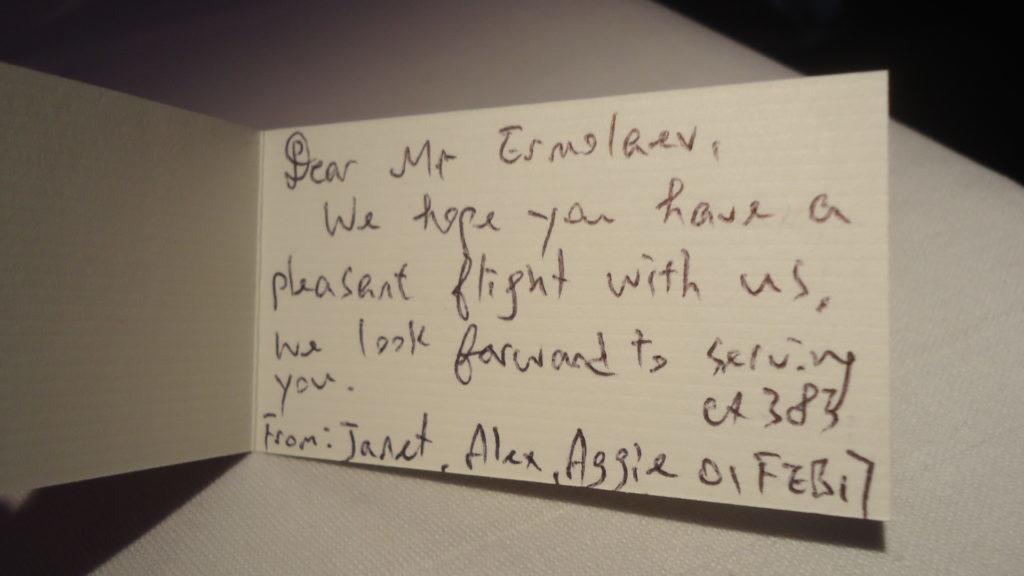 Dear Mr Ermolaev,
We hope you have a
pleasant flight with us,
we look forward to serving
you.
CX 383
From: Janet, Alex, Aggie 01FEB17